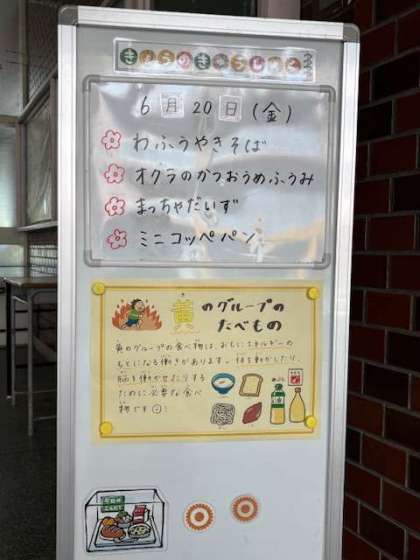 きょうのきゅうしょく
6月20日(金)
わふうやきそば
オクラのかつおうめふうみ
まっちゃだいず
ミニコッペパン
黄のグループの
たべもの
黄のグループの食べ物は、おもにエネルギーの
もとになる働きがあります。体を動かしたり、
脳を働かせたりする
ために必要な食べ
物です